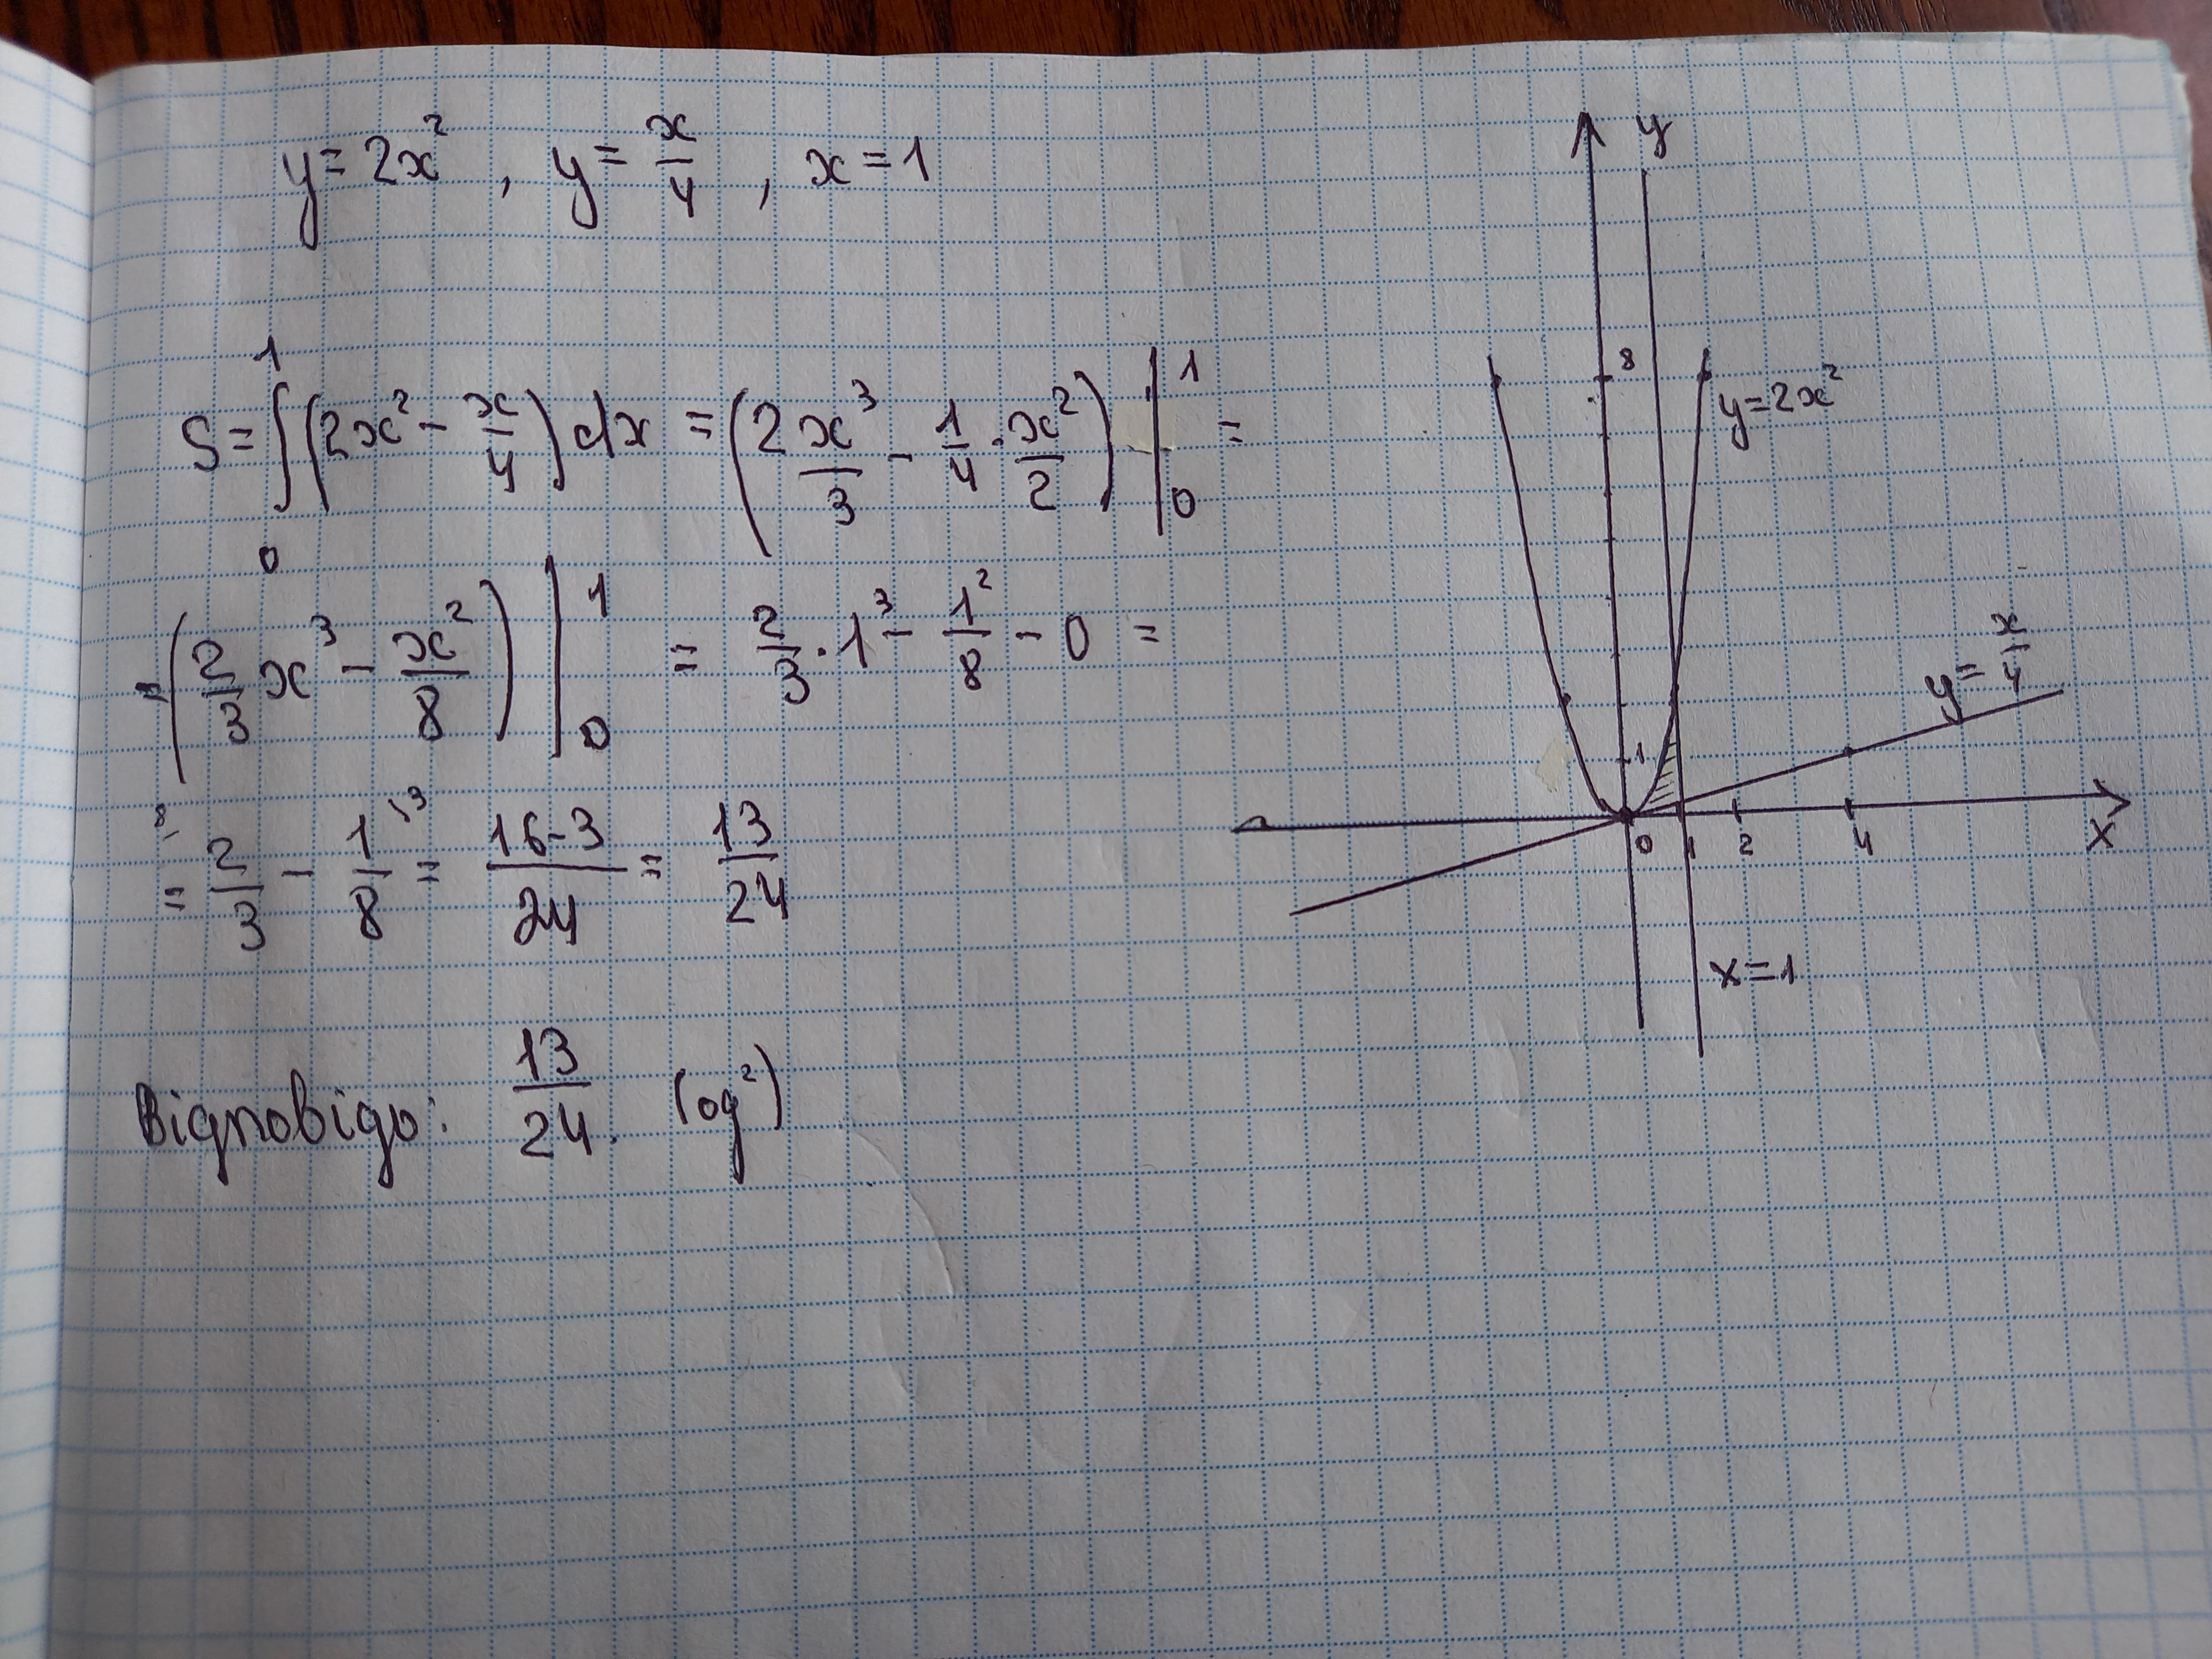 y = 2x², y = x/4, x = 1
S = ∫₀¹ (2x² - x/4) dx = (2 x³/3 - 1/4 · x²/2) |₀¹ =
= (2/3 x³ - x²/8) |₀¹ = 2/3 · 1³ - 1²/8 - 0 =
= ⁸⁾ 2/3 - 1/8 \³ = 16-3/24 = 13/24
Відповідь: 13/24. (од²)
y
8
y=2x²
y = x/4
1
0 1 2 4 x
x=1